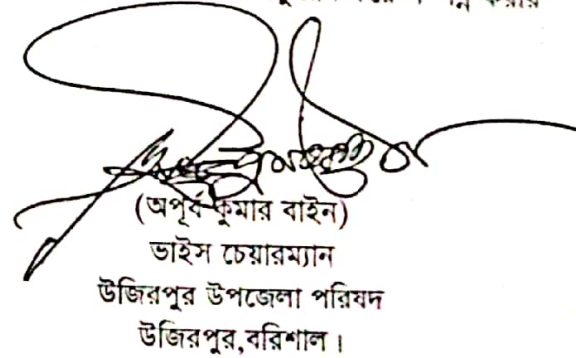 করার
(অপূর্ব কুমার বাইন)
ভাইস চেয়ারম্যান
উজিরপুর উপজেলা পরিষদ
উজিরপুর,বরিশাল।